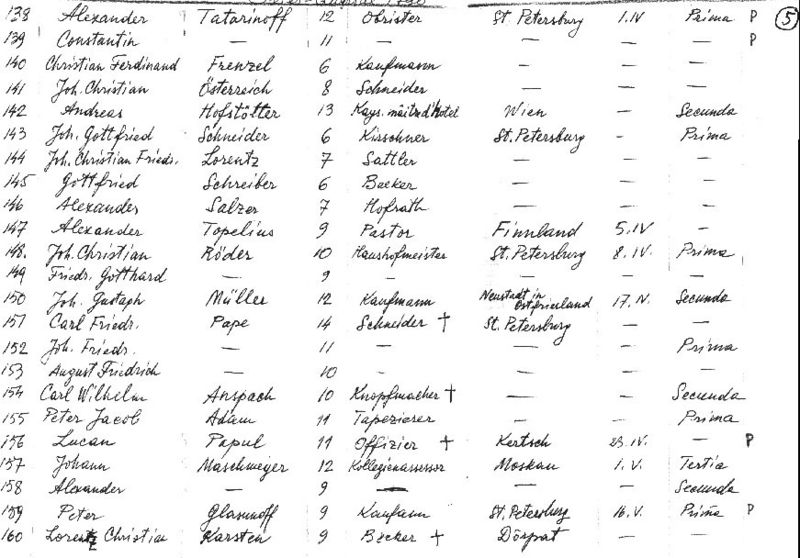 138 Alexander Tatarinoff 12 Obrister St. Petersburg 1.IV Prima P 5
139 Constantin — 11 — — — — P
140 Christian Ferdinand Frenzel 6 Kaufmann — — —
141 Joh. Christian Österreich 8 Schneider — — —
142 Andreas Hofstötter 13 Kays. Wien — Secunda
143 Joh. Gottfried Schneider 6 Kirschner St. Petersburg - Prima
144 Joh. Christian Friedr. Lorentz 7 Sattler — — —
145 Gottfried Schreiber 6 Becker — — —
146 Alexander Salzer 7 Hofrath — — —
147 Alexander Topelius 9 Pastor Finnland 5.IV —
148. Joh. Christian Röder 10 Haushofmeister St. Petersburg 8.IV. Prima
149 Friedr. Gotthard — 9 - — — —
150 Joh. Gustaph Müller 12 Kaufmann Neustadt in Ostfrienland 17.IV. Secunda
151 Carl Friedr. Pape 14 Schneider † St. Petersburg — —
152 Joh. Friedr. — 11 — — — Prima
153 August Friedrich — 10 - — — —
154 Carl Wilhelm Anspach 10 Knopfmacher † — — Secunda
155 Peter Jacob Adam 11 Tapezierer — — Prima
156 Lucan Papul 11 Offizier † Kertsch 23.IV. — P
157 Johann Maschmeyer 12 Kollegienassessor Moskau 1.V. Tertia
158 Alexander — 9 — — — Secunda
159 Peter Glasunoff 9 Kaufann St. Petersburg 16.V. Prima P
160 Lorentz Christian Karsten 9 Becker † Dörpat — —